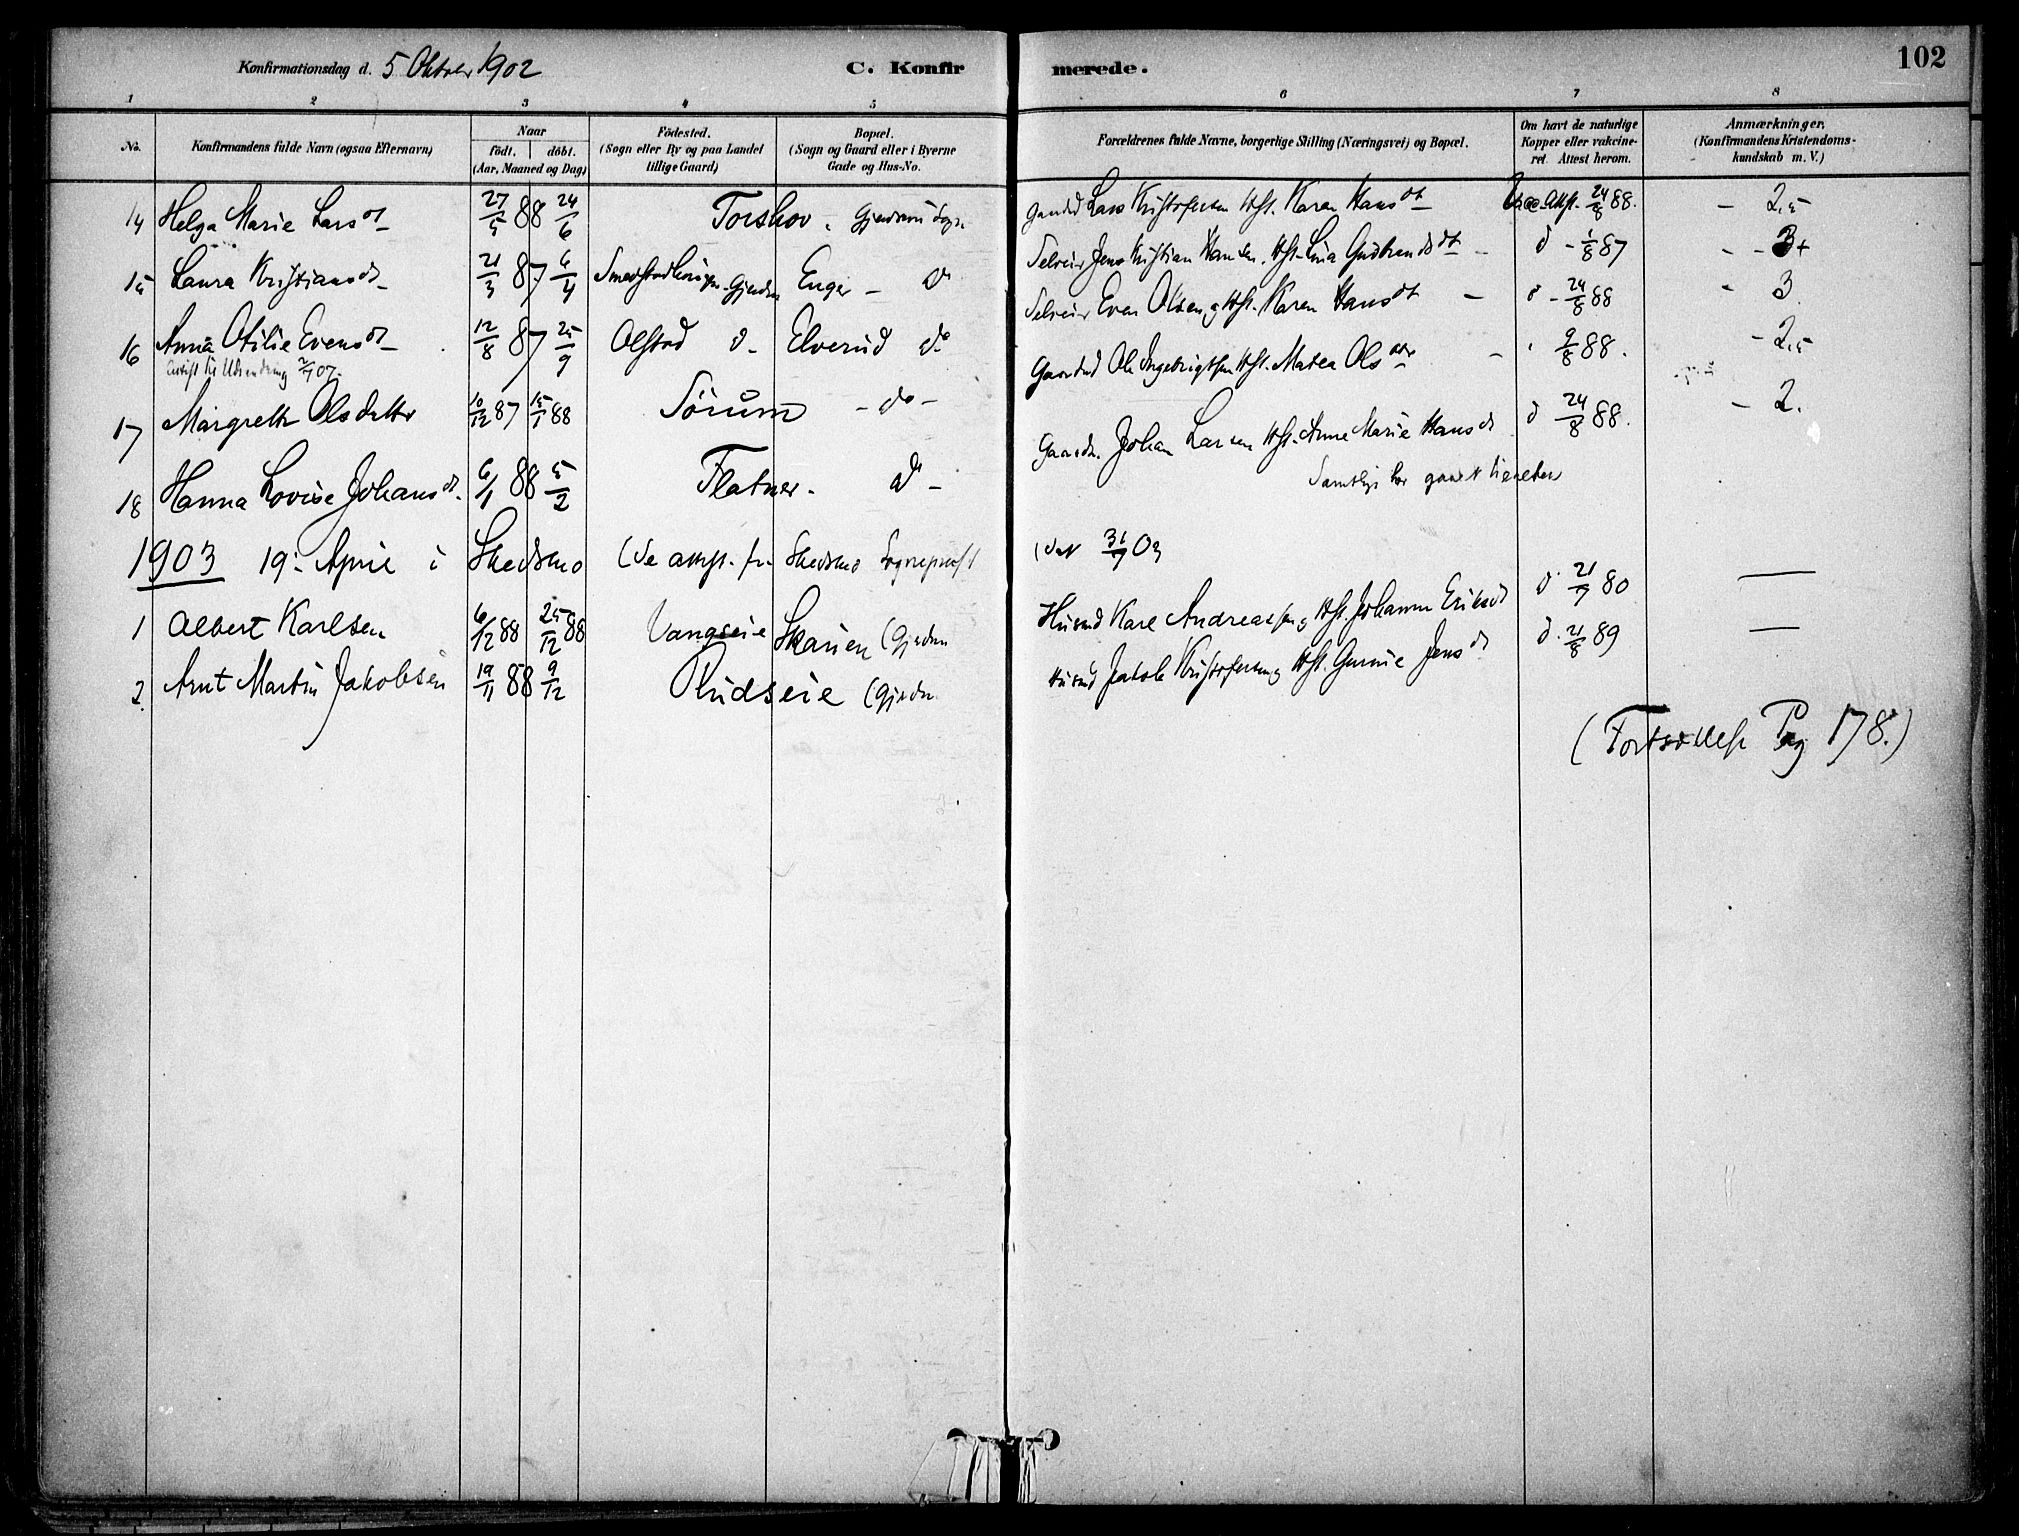 Konfirmationsdag d. 5 Oktober 1902 C. Konfir merede. 102
1 2 3 4 5 6 7 8
No. Konfirmandens fulde Navn (ogsaa Efternavn) Naar födt. döbt. (Aar, Maaned og Dag) Födested. (Sogn eller By og paa Landet tillige Gaard) Bopæl. (Sogn og Gaard eller i Byerne Gade og Hus-No. Forældrenes fulde Navne, borgerlige Stilling (Næringsvei) og Bopæl. Om havt de naturlige Kopper eller vakcineret. Attest herom. Anmærkninger. (Konfirmandens Kristendomskundskab m. V.)
14 Helga Marie Larsdt 27/5 88 24/6 Torshov. Gjerdrum Sogn Gaardbr Lars Kristofersen Hst. Karen Hansdt Vacc Attst. 24/8 88. - 2,5
15 Laura Kristiansdt 21/3 87 6/4 Enger - do Selveier Jens Kristian Hansen. Hst. Lina Gudbrandsdt - d - 1/8 87 - - 3+
16 Anna Otilie Evensdt 12/8 87 25/9 Olstad d. Elverud do Selveier Even Olsen og Hst. Karen Hansdt - d - 24/8 88 - 3
til Udvandring 2/7 07.
17 Margrethe Olsdatter 10/12 87 15/1 88 Sörum - do - Gaardbr Ole Ingebrigtsen Hst. Matea Olsdtr - 9/8 88. - 2,5
18 Hanna Lovise Johansdt. 6/1 88 5/2 Flatner. do - Gaardbr. Johan Larsen Hst. Anne Marie Hansdt d 24/8 88. - 2.
Samtlige har gaaet til
1903 19. April i Skedsmo (se attst. fr. Skedsmo Sogneprest dat 31/7 03
1 Albert Karlsen 6/12 88 25/12 88 Vangseie Skarien (Gjerdrum Husmd Karl Andreassen og Hst. Johanne Eriksdt d. 21/7 80 —
2. Arnt Martin Jakobsen 19/11 88 9/12 Rudseie (Gjerdr. Husmd Jakob Kristofersen og Hst. Gurine Jensdt d. 21/8 89 —
(Fortsættelse Pag 178.)